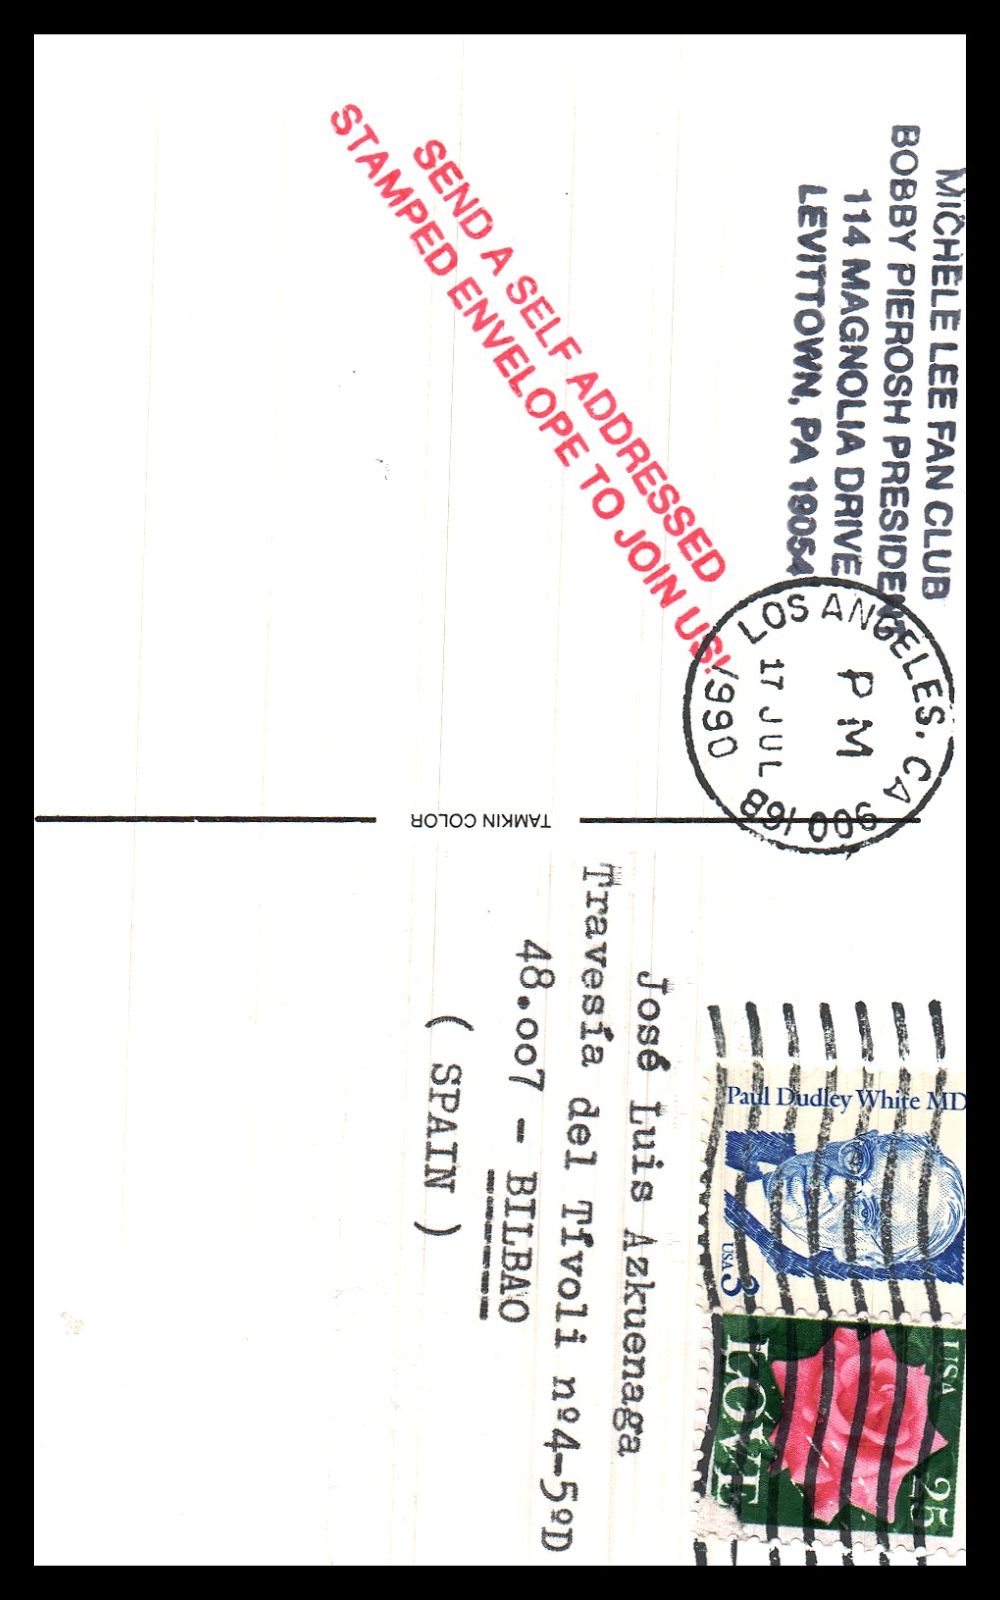 MICHELE LEE FAN CLUB
BOBBY PIEROSH PRESIDENT
114 MAGNOLIA DRIVE
LEVITTOWN, PA 19054
SEND A SELF ADDRESSED
STAMPED ENVELOPE TO JOIN US!
LOS ANGELES, CA 900 16B
PM
17 JUL
1990
TAMKIN COLOR
Paul Dudley White MD
USA 3
USA 25
LOVE
José Luis Azkuenaga
Travesía del Tívoli nº4-5ºD
48.007 - BILBAO
( SPAIN )